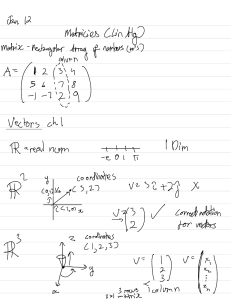 Jan 12
Matricies (Lin Alg)
Matrix - Rectangular Array of numbers (#'s)
column
A =
1 2 3 4
5 6 7 8
-1 -7 2 9
Vectors ch1
ℝ = real num
-e 0 1 π
1 Dim
ℝ²
y
coordinates
(3,2)
v = 3î + 2ĵ X
v = (3
2) ✓
correct notation
for vectors
ℝ³
z
coordinates
(1,2,3)
y
x
v = (1
2
3)
v = (x₁
x₂
⋮
xₙ)
3 rows
1 column
3x1 matrix